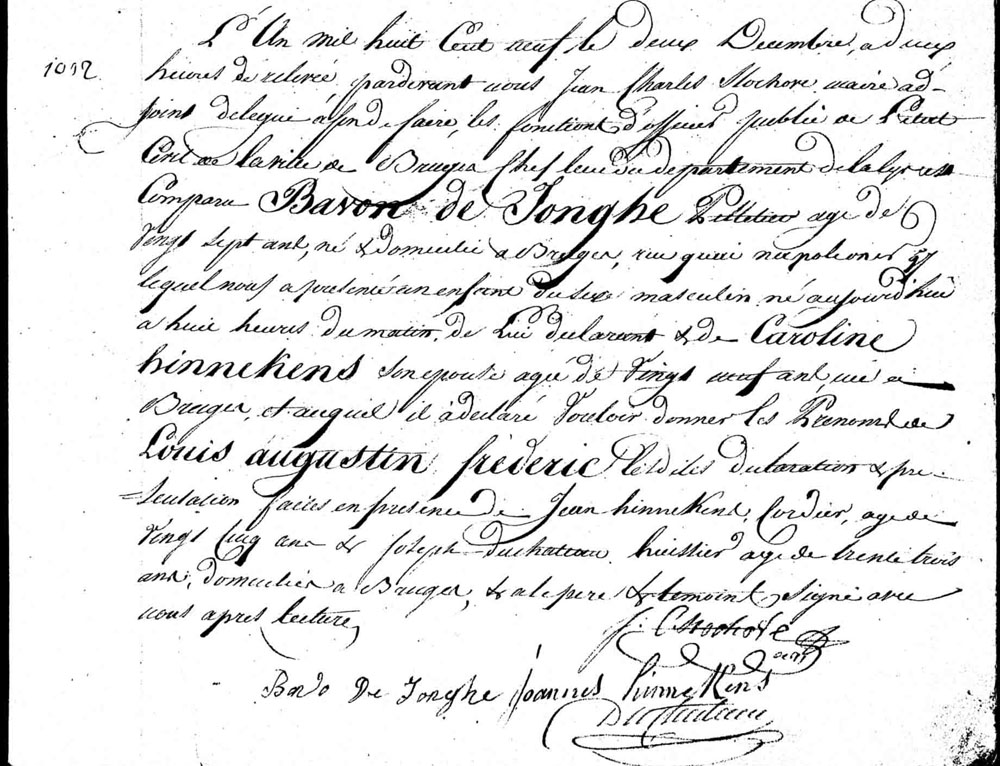 L'An mil huit Cent neuf le deux Decembre, a deux
1092
heures de relevée, pardevant nous Jean Charles Stochove, maire ad-
joint delegué afin de faire, les fonctions d'officier public de L'etat
Civil de la ville de Bruges Chef lieu du departement de la Lys est
Comparu Bavon de Jonghe Pelletier age de
Vingt Sept ans, né & domicilié a Bruges, rue quai napoleon
lequel nous a presenté un enfant du sexe masculin né aujourd'hui
a huit heures du matin, de Lui declarant & de Caroline
hinnekens son epouse agée de Vingt neuf ans, née a
Bruges, et auquel il a declaré Vouloir donner les Prenoms de
Louis augustin frederic lesdites declaration & pre-
=sentation faites en presence de Jean hinnekens, Cordier, age de
Vingt Cinq ans & Joseph Duchateau huissier age de trente trois
ans, domiciliés a Bruges, & a le pere & temoins Signé avec
nous apres lecture,
J. C Stochove
Bavo De Jonghe Joannes hinnekens
Duchateau